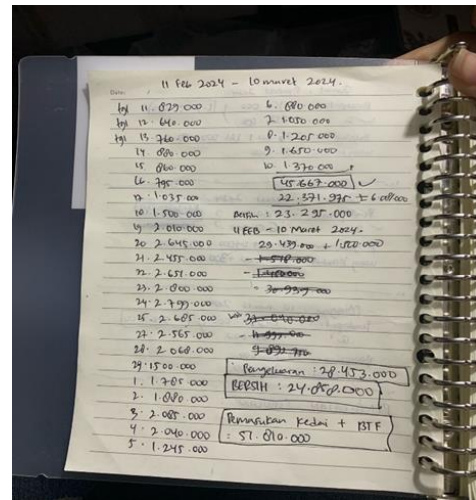 11 Feb 2024 - 10 maret 2024.
Date:
tgl 11. 829.000
tgl 12. 640.000
tgl 13. 760.000
14. 880.000
15. 860.000
16. 795.000
17. 1.035.000
18. 1.500.000
19. 2.010.000
20. 2.645.000
21. 2.455.000
22. 2.651.000
23. 2.800.000
24. 2.799.000
25. 2.685.000
27. 2.565.000
28. 2.068.000
29. 1500.000
1. 1.785.000
2. 1.880.000
3. 2.085.000
4. 2.040.000
5. 1.245.000
6. 880.000
7. 1.050.000
8. 1.205.000
9. 1.650.000
10. 1.370.000
45.667.000
22.371.975
Bersih : 23.295.000
11 FEB - 10 Maret 2024.
29.439.000 + 1.500.000
- 1.578.000
- 30.939.000
Pengeluaran : 28.453.000
BERSIH : 24.858.000
Pemasukan Kedai + BTF
: 57.810.000